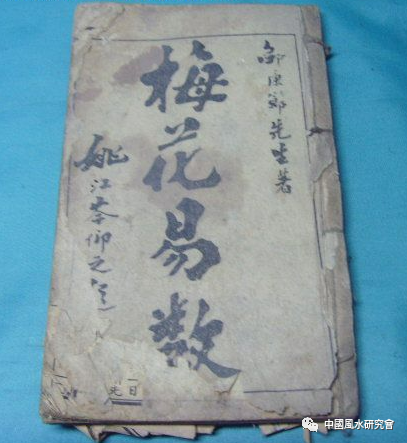 邵康節先生著
梅花易数
姚江
仰之
中國風水研究會